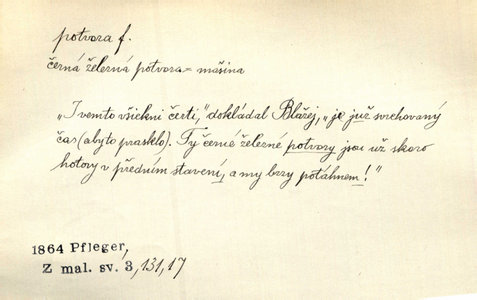 potvora f.
černá železná potvora = mašina
„I vemto všickni čerti," dokládal Blažej, „je již svrchovaný
čas (aby to prasklo). Ty černé železné potvory jsou už skoro
hotovy v předním stavení, a my brzy potáhnem!"
1864 Pfleger,
Z mal. sv. 3, 131, 17